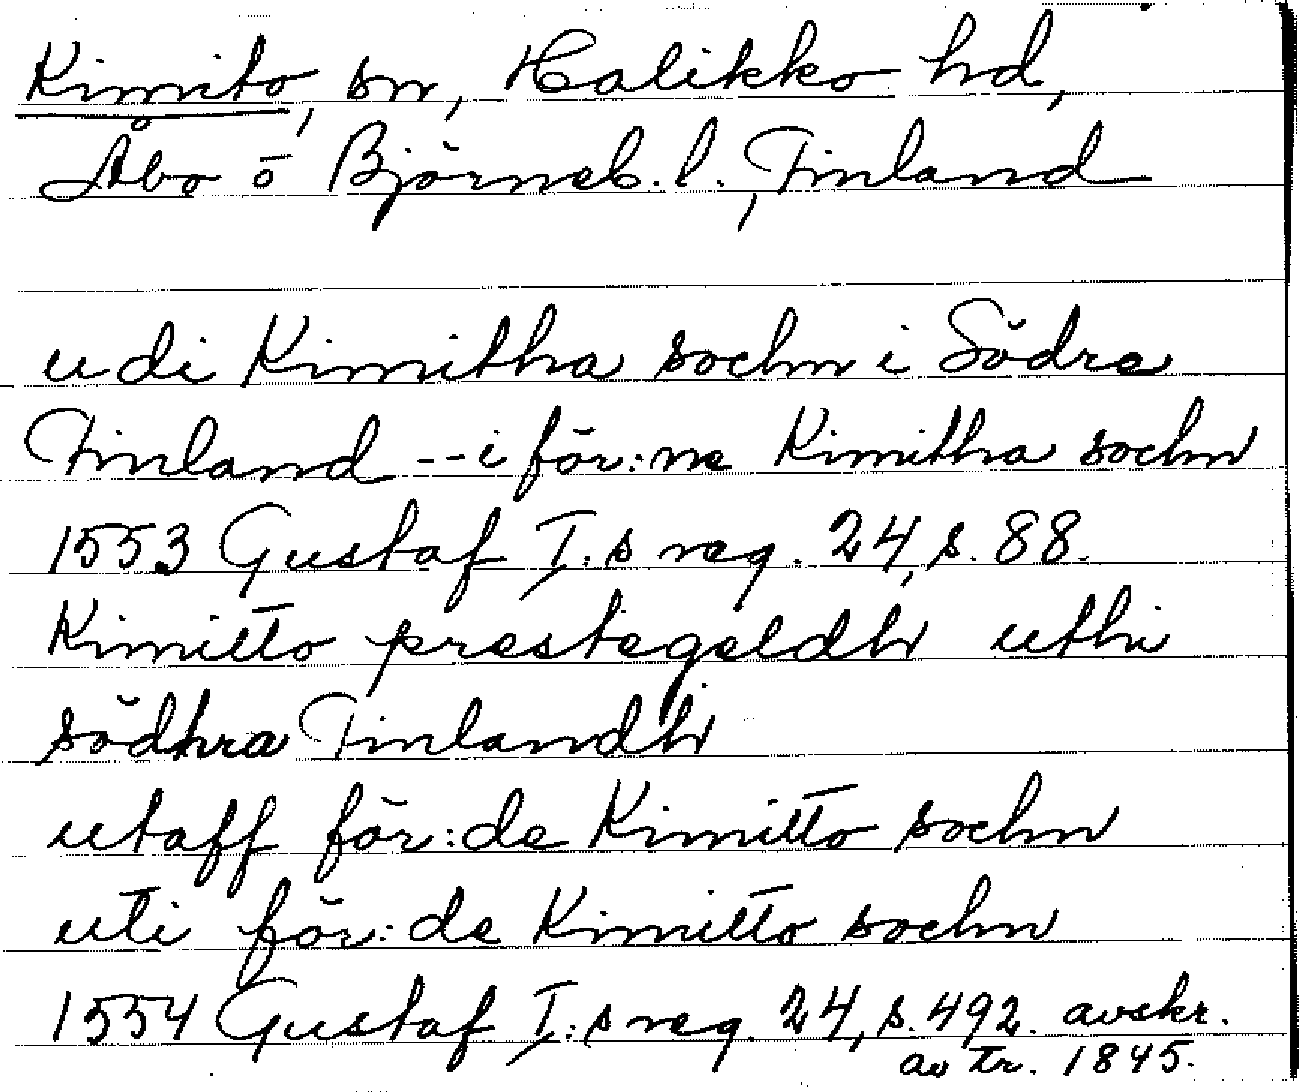 Kimito, sn, Halikko hd,
Åbo o Björneb. l., Finland
udi Kimitha sochn i Södra
Finland -- i för:ne Kimitha sochn
1553 Gustaf I:s reg. 24, s. 88.
Kimitto prestegeldh uthi
södhra Finlandh
utaff för:de Kimitto sochn
uti för:de Kimitto sochn
1554 Gustaf I:s reg. 24, s. 492. avskr.
av tr. 1845.